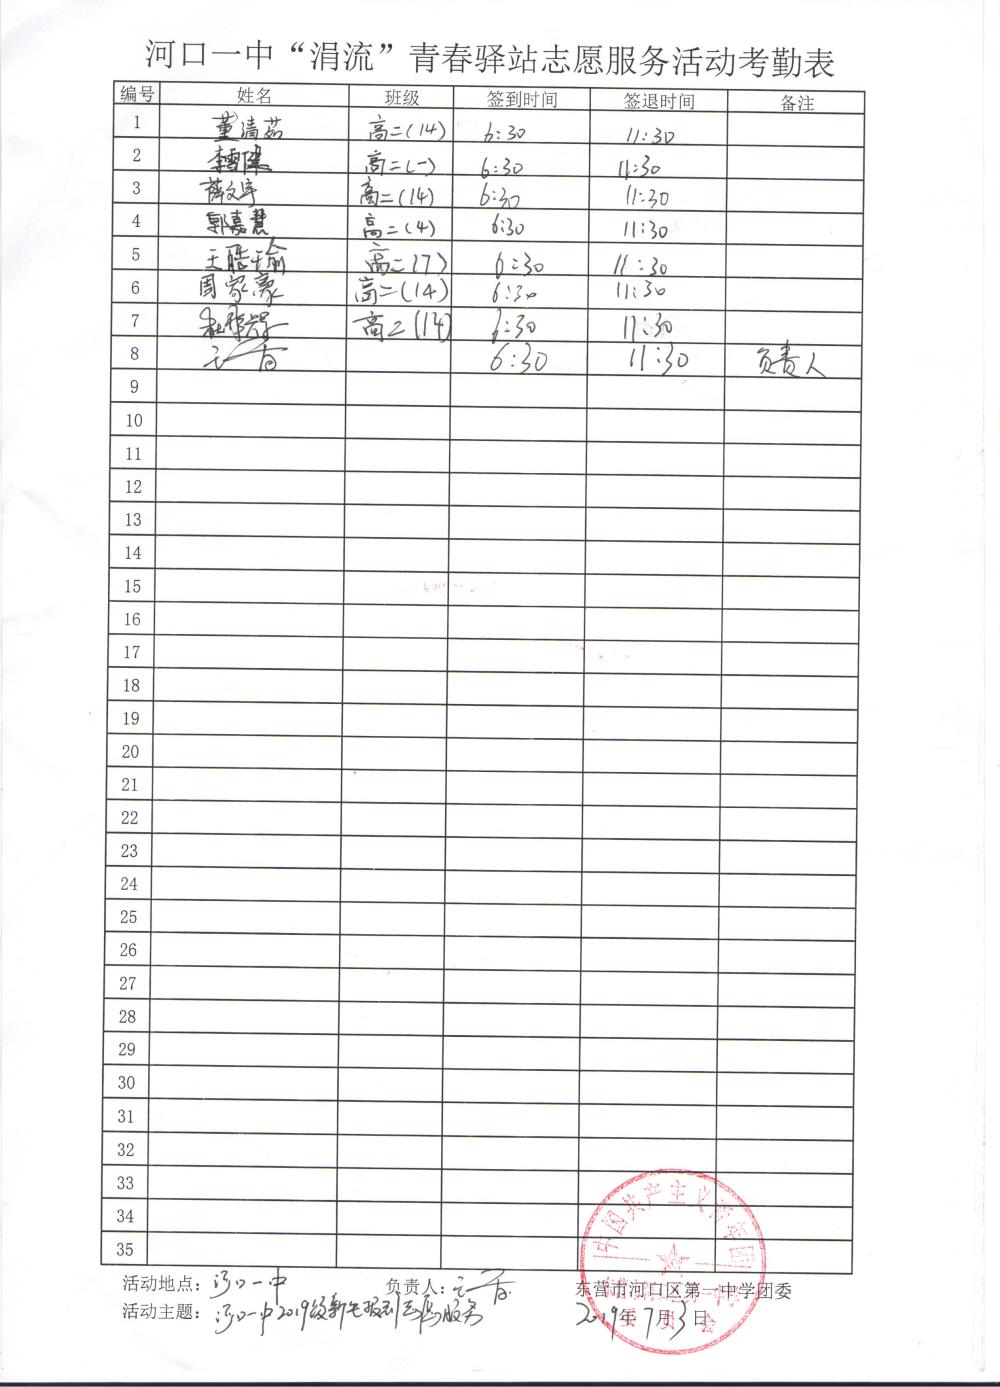 河口一中“涓流”青春驿站志愿服务活动考勤表
编号 姓名 班级 签到时间 签退时间 备注
1 董清茹 高二(14) 6:30 11:30
2 高二(一) 6:30 11:30
3 薛文宇 高二(14) 6:30 11:30
4 郭嘉慧 高二(4) 6:30 11:30
5 高二(7) 6:30 11:30
6 周家豪 高二(14) 6:30 11:30
7 高二(14) 6:30 11:30
8 6:30 11:30 负责人
9
10
11
12
13
14
15
16
17
18
19
20
21
22
23
24
25
26
27
28
29
30
31
32
33
34
35
中国共产主义青年团
活动地点：河口一中 负责人： 东营市河口区第一中学团委
活动主题：河口一中2019级新生报到志愿服务 2019年7月13日
委员会